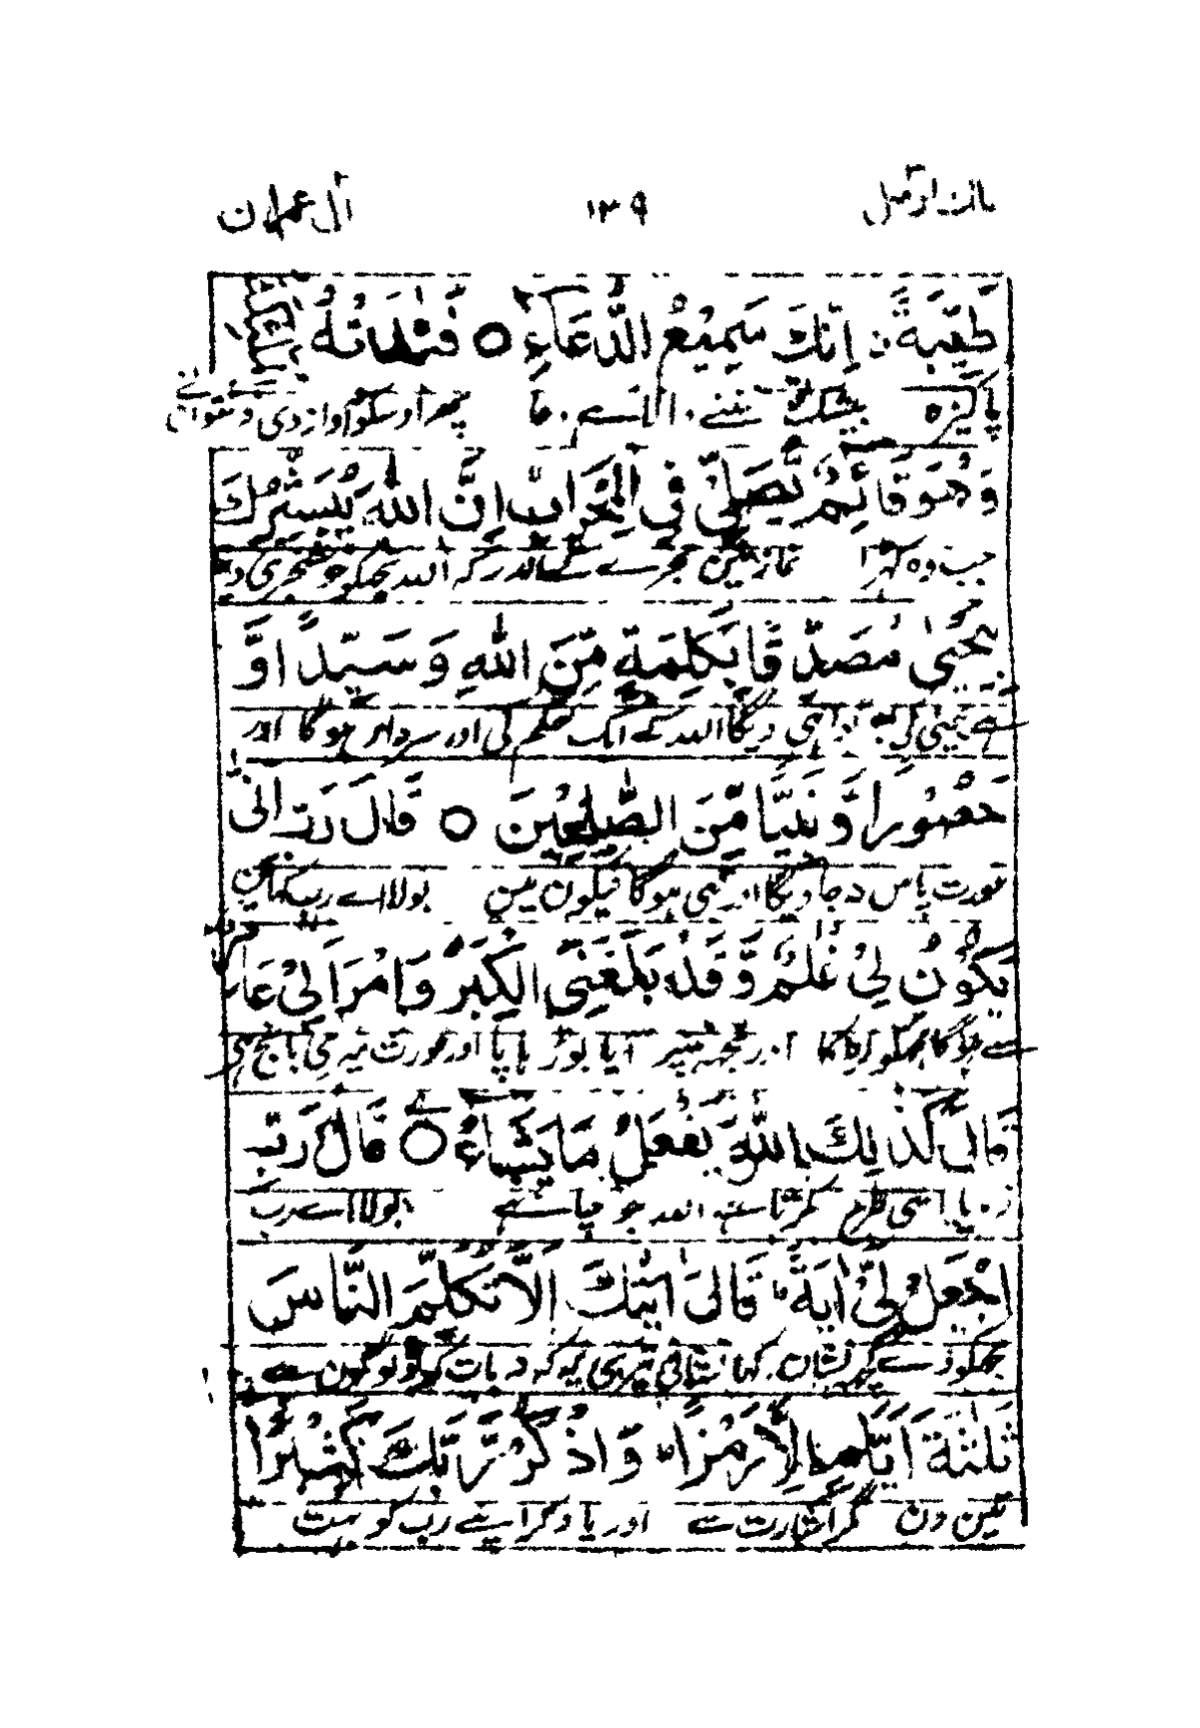 آل عمران ۱۳۹
طَيِّبَةً اِنَّكَ سَمِيْعُ الدُّعَآءِ ○ فَنَادَتْهُ
پاکیزہ بیشک تو سننے پھر اوسکو آواز دی
وَهُوَ قَآئِمٌ يُّصَلِّيْ فِي الْمِحْرَابِ اِنَّ اللّٰهَ يُبَشِّرُكَ
جب وہ کہڑا نماز مین حجرے کے اندر کہ اللہ تجھکو خوشخبری دیتا
بِيَحْيٰى مُصَدِّقًا بِكَلِمَةٍ مِّنَ اللّٰهِ وَسَيِّدًا وَّ
ہے یحیٰی کی گواہی دیگا اللہ کے ایک حکم کی اور سردار ہوگا اور
حَصُوْرًا وَّنَبِيًّا مِّنَ الصّٰلِحِيْنَ ○ قَالَ رَبِّ اَنّٰى
عورت پاس نہ جاویگا اور نبی ہوگا نیکون مین بولا اے رب کہان
يَكُوْنُ لِيْ غُلٰمٌ وَّقَدْ بَلَغَنِيَ الْكِبَرُ وَامْرَاَتِيْ عَاقِرٌ
سے ہوگا مجھکو لڑکا اور مجھہ پر آیا بوڑہاپا اور عورت میری بانجھ ہی
قَالَ كَذٰلِكَ اللّٰهُ يَفْعَلُ مَا يَشَآءُ ○ قَالَ رَبِّ
اسی طرح کرتا ہے اللہ جو چاہے بولا اے رب
اجْعَلْ لِّيْٓ اٰيَةً قَالَ اٰيَتُكَ اَلَّا تُكَلِّمَ النَّاسَ
مجھکو دے کچھ نشانی کہا نشانی تیری یہ کہ نہ بات کرے تو لوگون سے
ثَلٰثَةَ اَيَّامٍ اِلَّا رَمْزًا وَاذْكُرْ رَّبَّكَ كَثِيْرًا
تین دن مگر اشارت سے اور یاد کر اپنے رب کو بہت